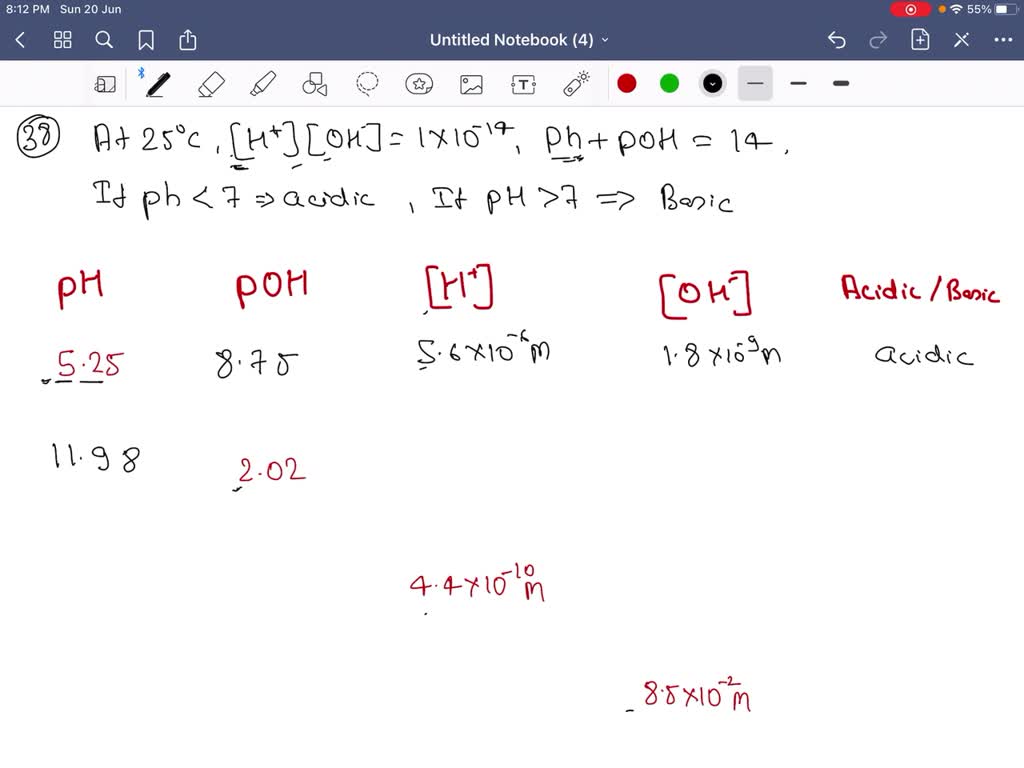 8:12 PM Sun 20 Jun 55%
Untitled Notebook (4)
38 At 25°C, [H⁺][OH] = 1×10⁻¹⁴, Ph + pOH = 14.
If ph < 7 ⇒ acidic, If pH > 7 ⇒ Basic
pH pOH [H⁺] [OH⁻] Acidic/Basic
5.25 8.75 5.6×10⁻⁶m 1.8×10⁻⁹m acidic
11.98 2.02
4.4×10⁻¹⁰m
8.5×10⁻²m